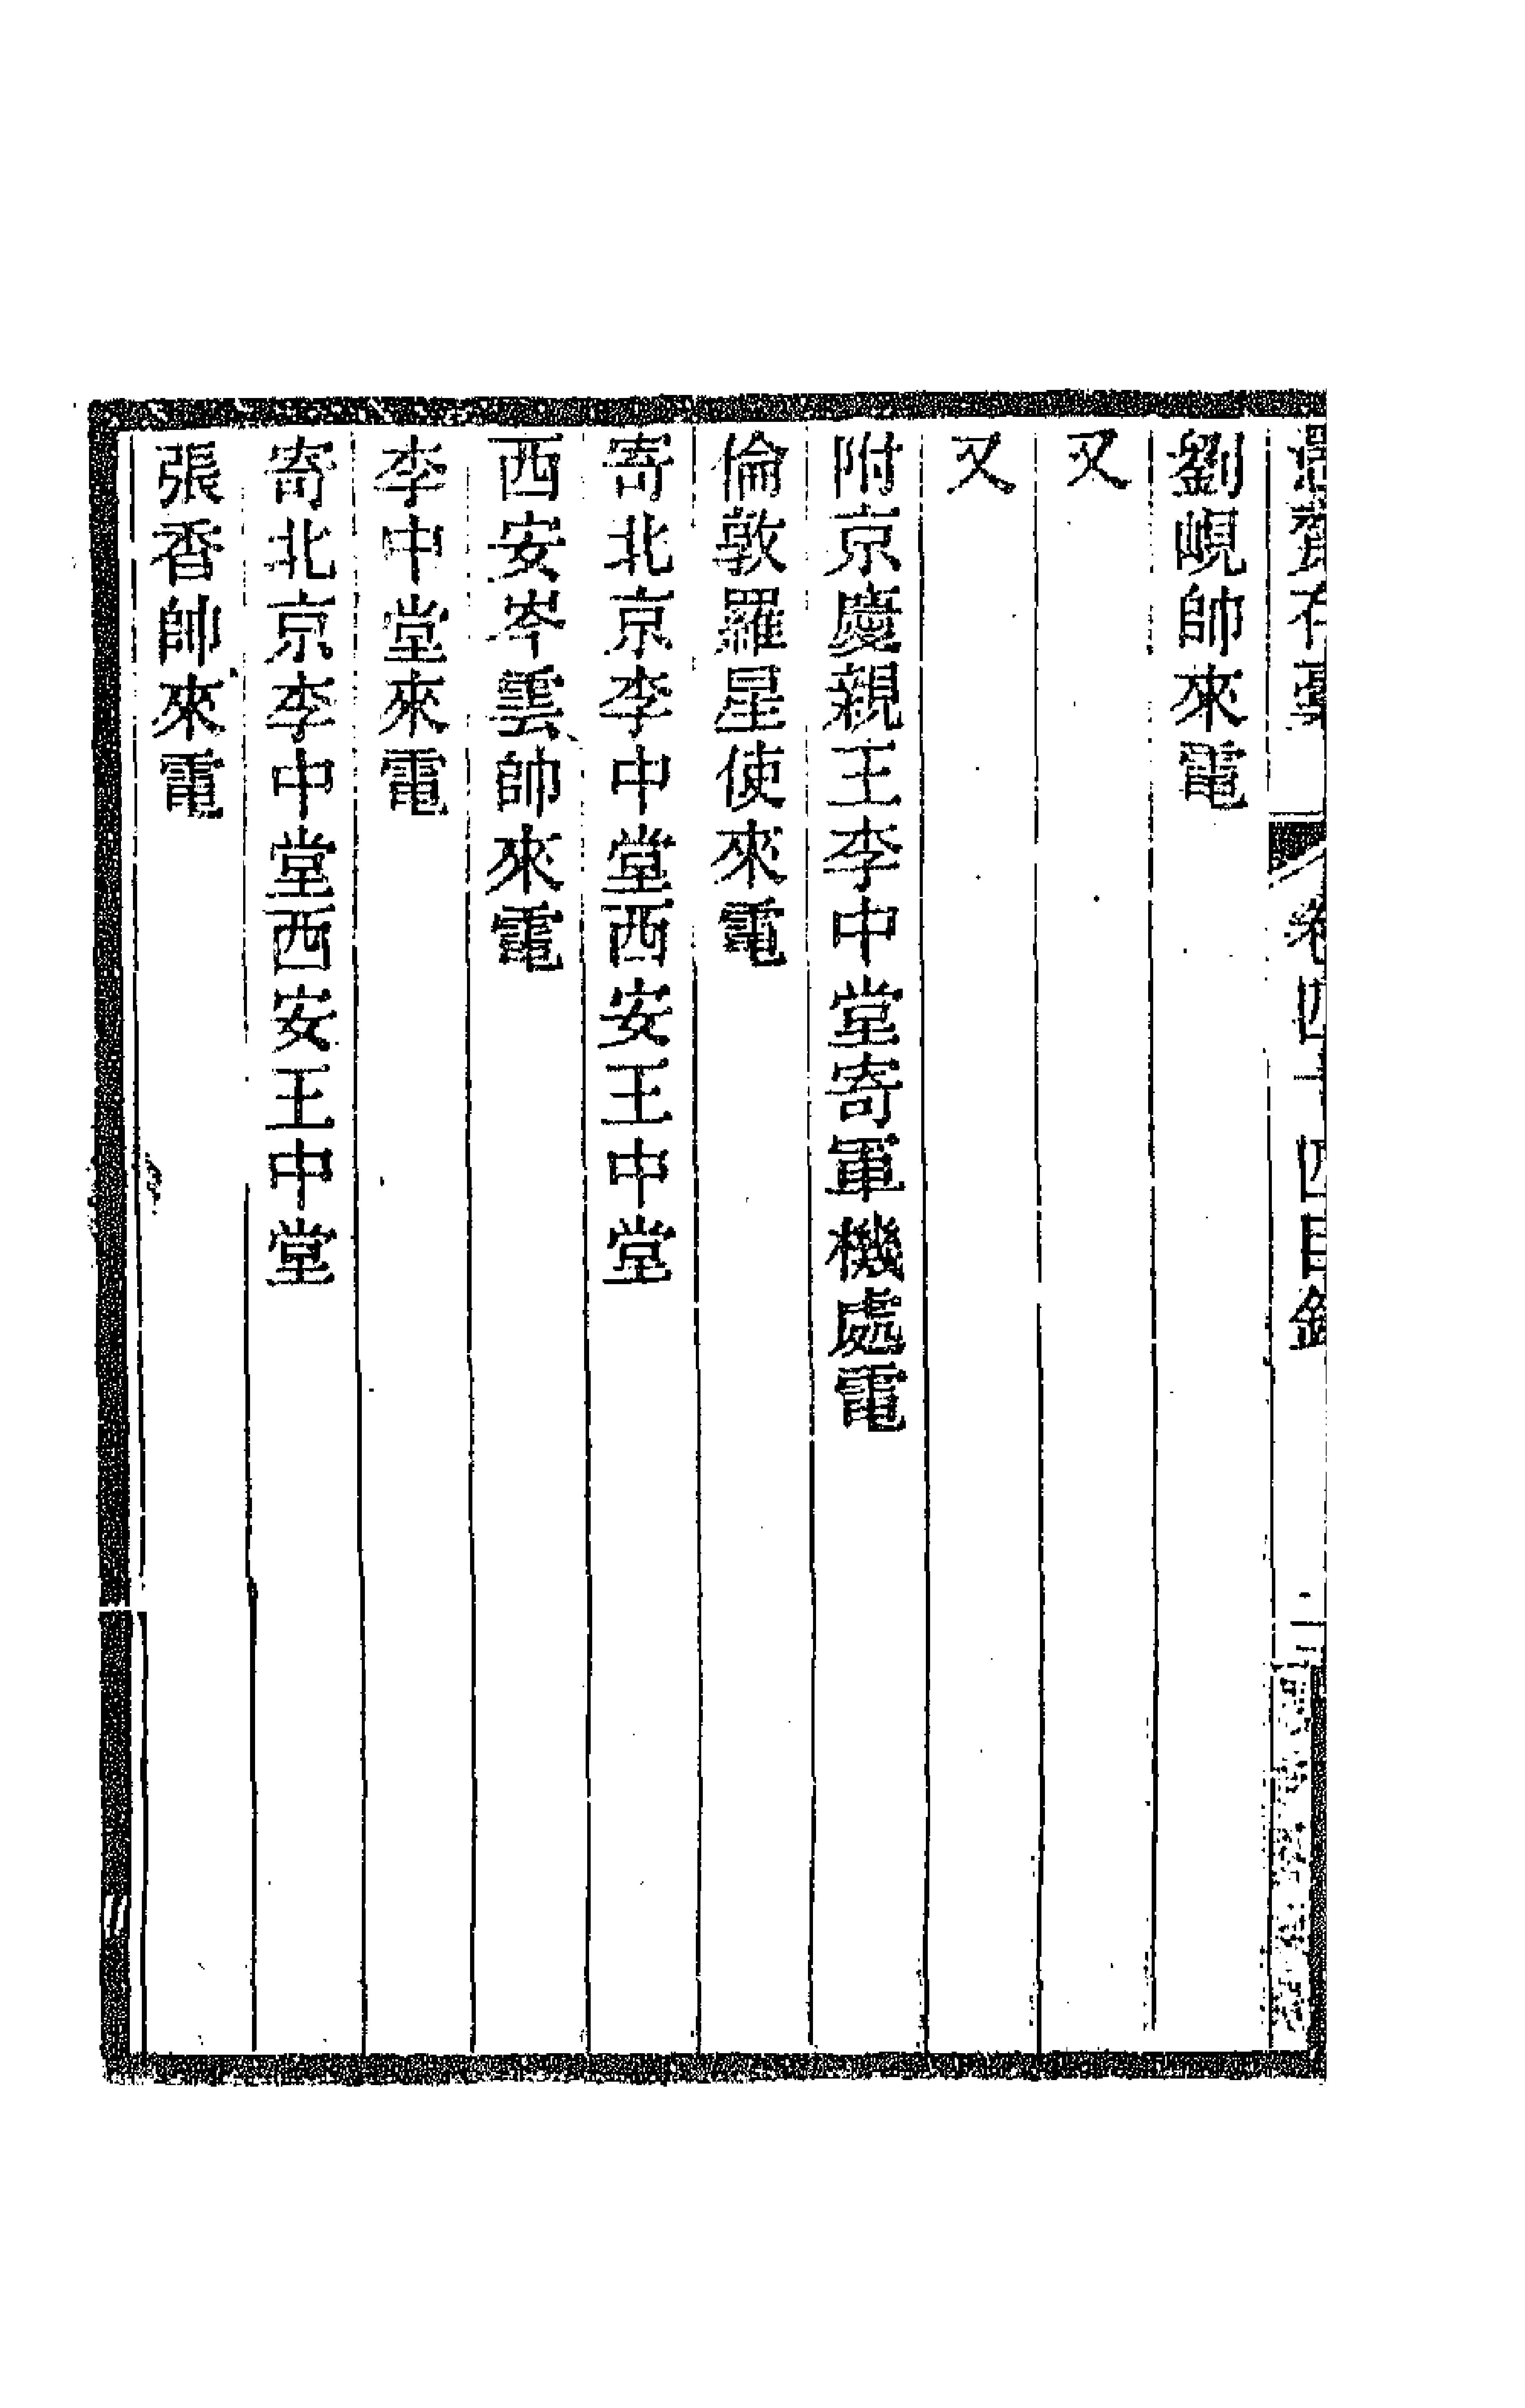 愚齋存稾 卷四十四目錄 二
劉峴帥來電
又
又
附京慶親王李中堂寄軍機處電
倫敦羅星使來電
寄北京李中堂西安王中堂
西安岑雲帥來電
李中堂來電
寄北京李中堂西安王中堂
張香帥來電